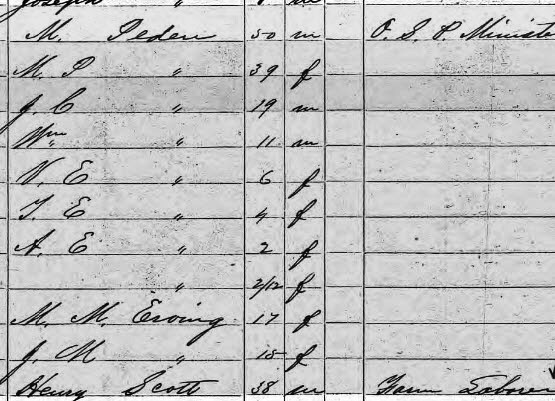 Joseph " m
M. Peden 50 m O. S. P. Ministe
M. P " 39 f
J. C " 19 m
Wm " 11 m
V. E " 6 f
T. E " 4 f
A. E " 2 f
" 2/12 f
M. M. Erving 17 f
J. M " 15 f
Henry Scott 38 m Farm Laborer